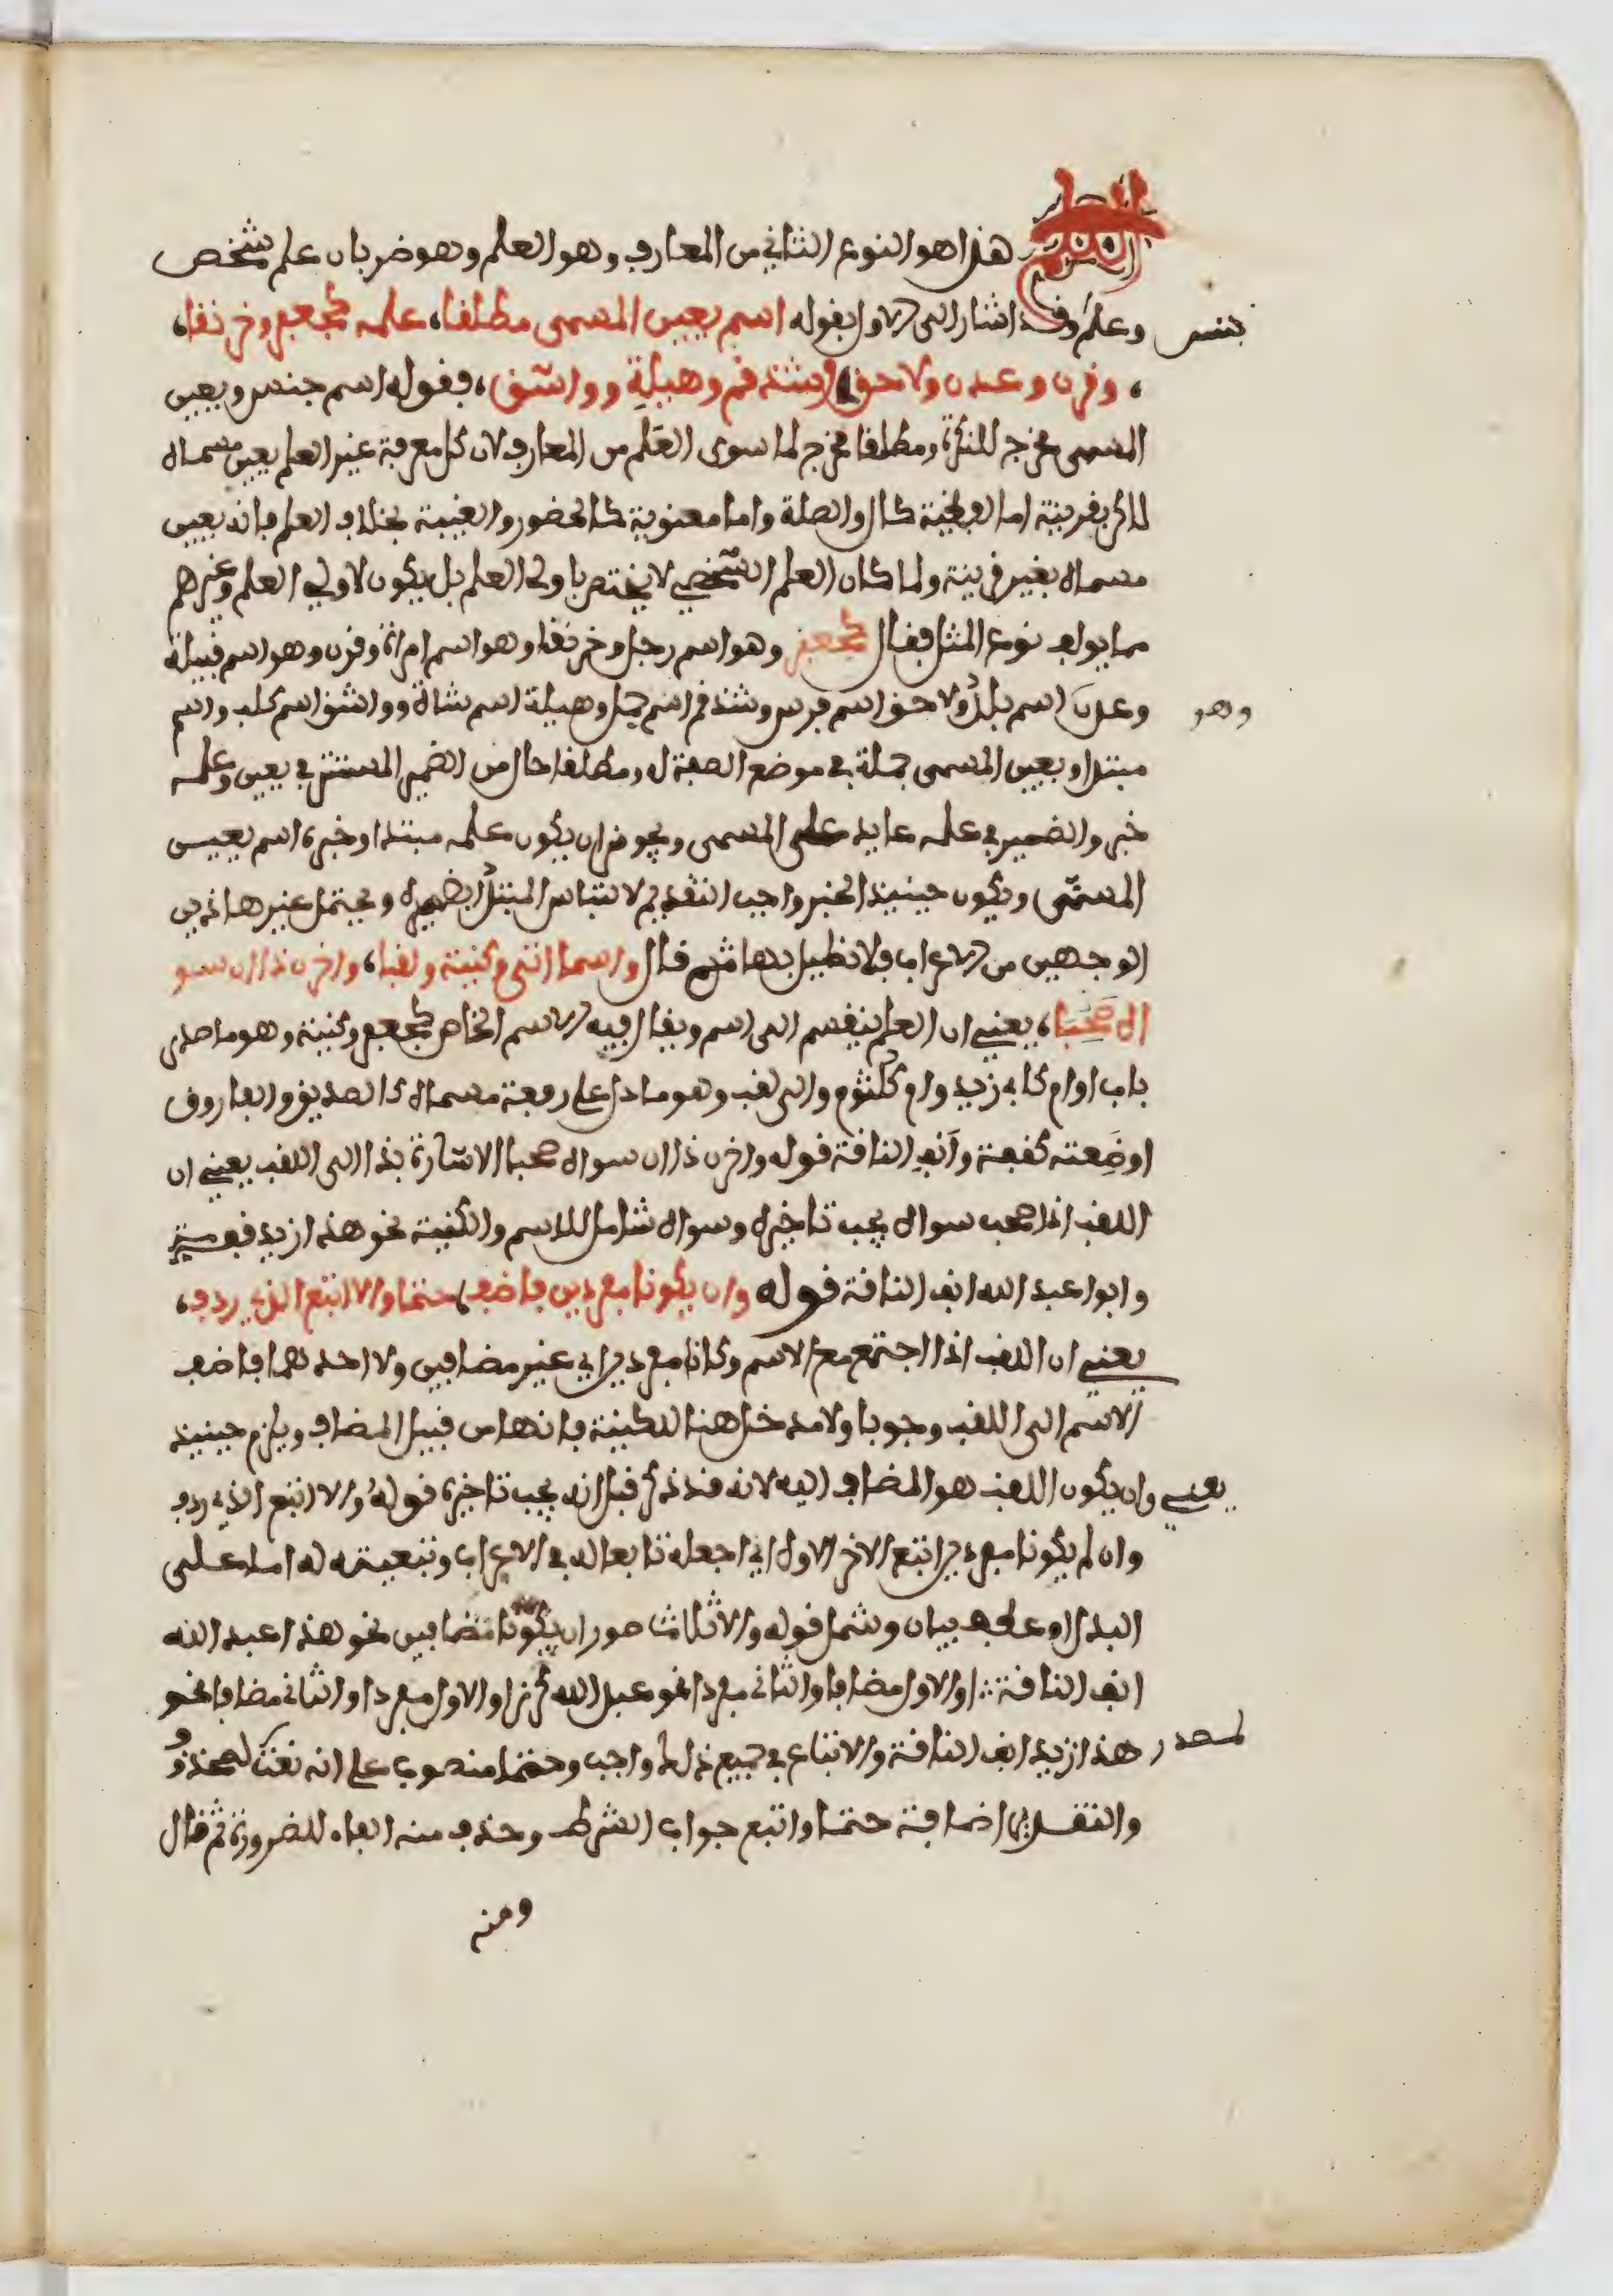 العلم
هذا هو النوع الثاني من المعارف وهو العلم وهو ضربان علم شخص
وعلم جنس وقد اشار الى الاول بقوله اسم يعين المسمى مطلقا، علمه كجعفر وخرنقا،
، وقرن وعدن ولاحق، وشذقم وهيلة وواشق، فقوله اسم جنس ويعين
المسمى مخرج للنكرة ومطلقا مخرج لما سوى العلم من المعارف لان كل معرفة غير العلم يعين مسماه
لاكن بقرينة اما لفظية كال والصلة واما معنوية كالحضور والغيبة بخلاف العلم فانه يعين
مسماه بغير قرينة ولما كان العلم الشخصي لا يختص باولى العلم بل يكون لاولي العلم وغيرهم
مما يولف نوع المثل فقال كجعفر وهو اسم رجل وخرنقا وهو اسم امراة وقرن وهو اسم قبيلة
وعدن وهو اسم بلد ولاحق اسم فرس وشذقم اسم جمل وهيلة اسم شاة وواشق اسم كلب واسم
مبتدا ويعين المسمى جملة في موضع الصفة له ومطلقا حال من الضمير المستتر في يعين وعلمه
خبر والضمير في علمه عايد على المسمى ويجوز ان يكون علمه مبتدا وخبره اسم يعين
المسمى ويكون حينيذ الخبر واجب التقديم لالتباس المبتدا بضميره ويحتمل غير هاذين
الوجهين من الاعراب فلا نطيل بها ثم قال واسما اتى وكنية ولقبا، واخرن ذا ان سو
اه صحبا، يعني ان العلم ينقسم الى اسم ويقال فيه الاسم الخاص كجعفر وكنية وهو ما صدر
باب او ام كابي زيد وام كلثوم والى لقب وهو ما دل على رفعة مسماه كالصديق والفاروق
او ضعته كقفة وانف الناقة قوله واخرن ذا ان سواه صحبا الاشارة بذا الى اللقب يعني ان
اللقب اذا صحب سواه يجب تاخيره وسواه شامل للاسم والكنية نحو هذا زيد قفة
وابوا عبد الله انف الناقة قوله وان يكونا مفردين فاضف، حتما والا اتبع الذي ردف،
يعني ان اللقب اذا اجتمع مع الاسم وكانا مفردين اي غير مضافين ولا احدهما فاضف
الاسم الى اللقب وجوبا ولا مدخل هنا للكنية فانها من قبيل المضاف ويلزم حينيذ
وان يكون اللقب هو المضاف اليه لانه قد ذكر قبل انه يجب تاخيره قوله والا اتبع الذي ردف يعني
وان لم يكونا مفردين اتبع الاخر الاول اي اجعله تابعا له في الاعراب وتبعيته له اما على
البدل او عطف بيان وشمل قوله والا ثلاث صور ان يكونا مضافين نحو هذا عبد الله
انف الناقة او الاول مضافا والثاني مفردا نحو عبد الله كرز او الاول مفردا والثاني مضافا نحو
هذا زيد انف الناقة والاتباع في جميع ذلك واجب وحتما منصوب على انه نعت لمصدر محذوف
والتقدير اضافة حتما واتبع جواب الشرط وحذف منه الفاء للضرورة ثم قال
ومنه